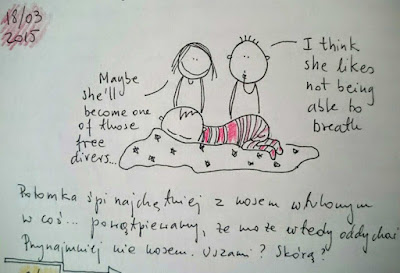 18/03
2015
Maybe
she'll
become one
of those
free
divers...
I think
she likes
not being
able to
breath
Potomka śpi najchętniej z nosem wtulonym
w coś... powątpiewamy, że może wtedy oddychać
Przynajmniej nie nosem. Uszami? Skórą?